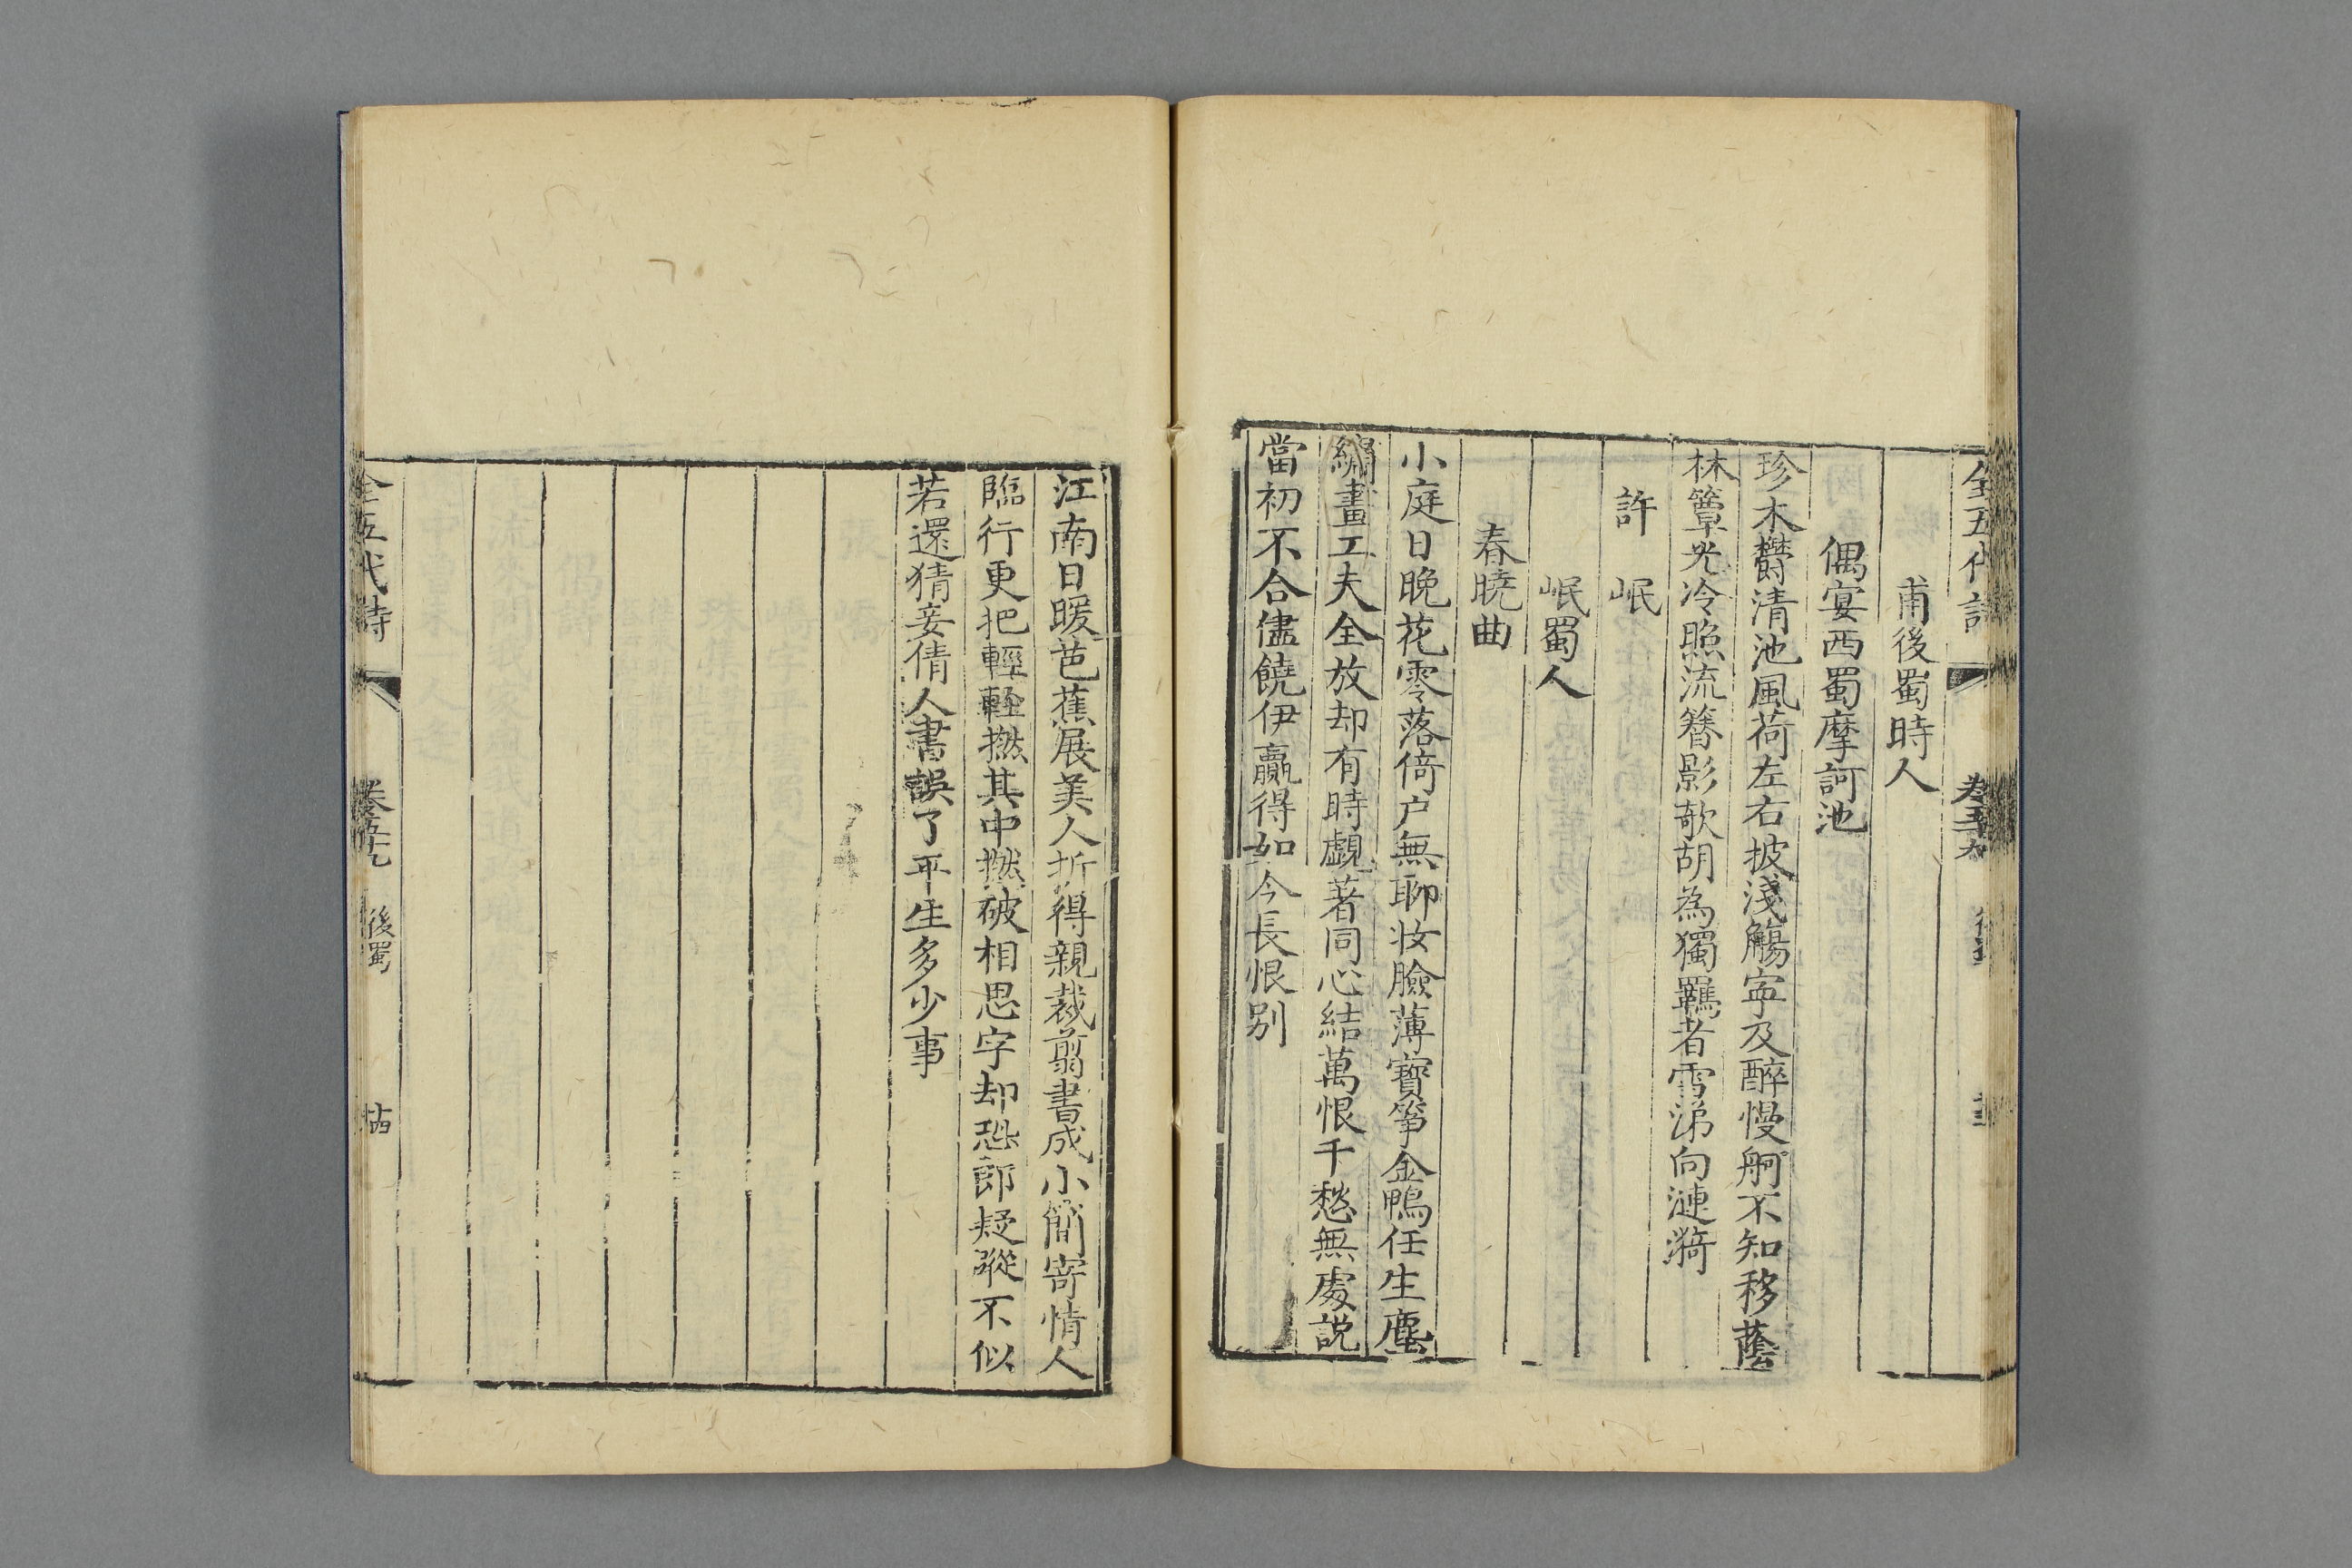 全五代詩
卷五十九
甫後蜀時人
偶宴西蜀摩訶池
珍木鬱清池風荷左右披淺觴寧及醉慢舸不知移蔭
林簟光冷照流簪影欹胡為獨羈者雪涕向漣漪
許岷
岷蜀人
春曉曲
小庭日晚花零落倚户無聊妝臉薄寶箏金鴨任生塵
繡畫工夫全放却有時覷著同心結萬恨千愁無處説
當初不合儘饒伊贏得如今長恨别
江南日暖芭蕉展美人折得親裁翦書成小簡寄情人
臨行更把輕輕撚其中撚破相思字却恐郎疑蹤不似
若還猜妾倩人書誤了平生多少事
全五代詩
卷五十九
後蜀